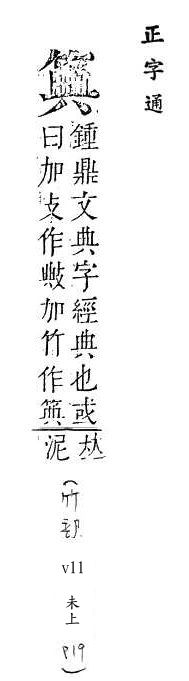 正字通
𥮏
鍾鼎文典字經典也或
曰加攴作敟加竹作𥮏
𠀤
泥
(竹部
v11
未上
P19)